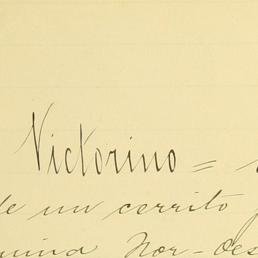 Victorino =
de un cerrito
mina Nor-Oes